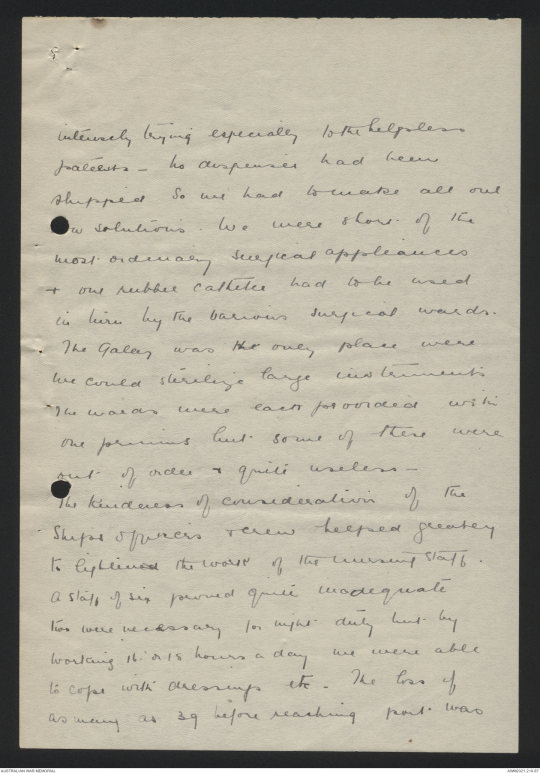 5
intensely trying especially to the helpless
patients – no dispenser had been
shipped so we had to make all our
own solutions. We were short of the
most ordinary surgical appliances
+ one rubber catheter had to be used
in turn by the various surgical wards.
The Galley was the only place were
we could sterilize large instruments
The wards were each provided with
one primus but some of these were
out of order & quite useless –
The kindness of consideration of the
Ships officers & crew helped greatly
to lightened the work of the nursing staff.
A staff of six proved quite inadequate
two were necessary for night duty but by
working 16 or 18 hours a day we were able
to cope with dressings etc – The loss of
as many as 39 before reaching port was
AUSTRALIAN WAR MEMORIAL